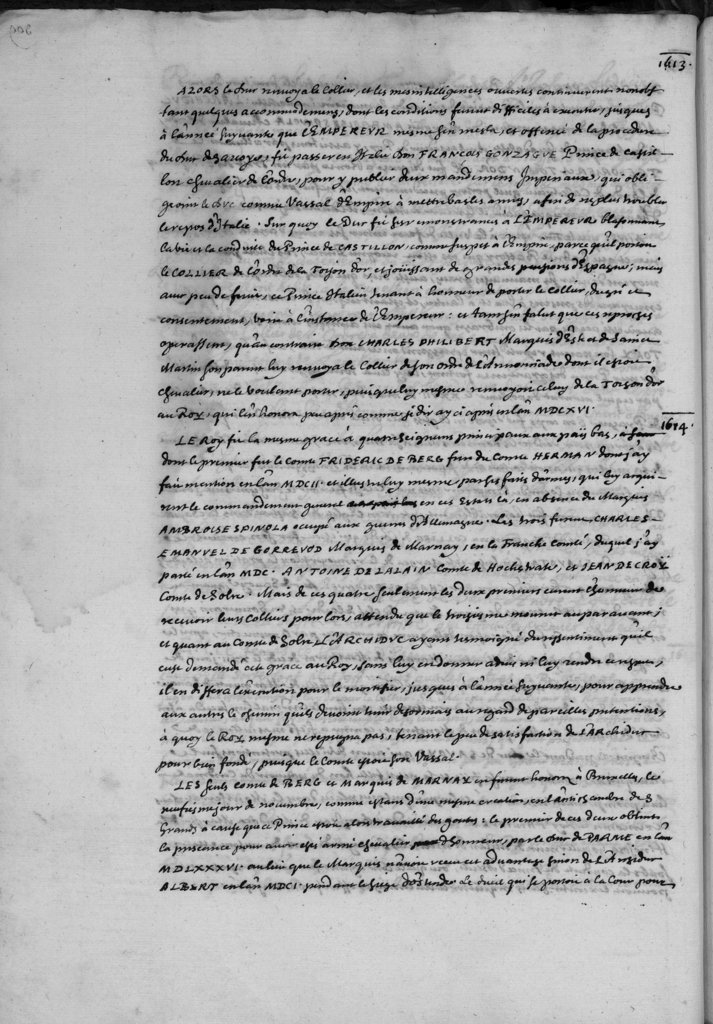 1613.
ALORS le Duc renvoya le Collier, et les mesintelligences ouvertes continuerent nonobs
tant quelques accommodemens, dont les conditions furent difficiles à executer, jusques
à l'année suyvante que L'EMPEREVR mesme s'en mesla, et offencé de la procedure
du Duc de Savoye, fit passer en Italie Don FRANCOIS GONZAGVE Prince de Castil-
lon chevalier de l'ordre, pour y publier deux mandemens Imperiaux, qui obli-
geoint le Duc comme Vassal d'Empire à mettre bas les armes, afin de ne plus troubler
le repos d'Italie. Sur quoy le Duc fit ses remonstrances à L'EMPEREVR blasonnant
la vie et la conduite du Prince de CASTILLON, comme suspet à l'Empire, parce qu'il portoit
le COLLIER de l'ordre de la Toyson d'or, et jouissant de grandes pensions d'Espagne; mais
avec peu de fruit, ce Prince Italien tenant à honneur de porter le Collier, du sçeu et
consentement, voire à l'instance de l'Empereur: et tant s'en falut que ces reproches
operassent, qu'au contraire Don CHARLES PHILIBERT Marquis d'Est et de Sainct
Martin son parent luy renvoya le Collier de son ordre de l'Annonciade dont il estoit
chevalier, ne le voulant porter, puisque luy mesme renvoyoit celuy de la Toison d'or
au ROY, qui l'en honora peu après comme je diray cy après en l'an MDCXVI.
1614.
LE Roy fit la mesme grace à quatre seigneurs principaux aux païs bas,
dont le premier fut le Comte FRIDERIC DE BERG frere du Comte HERMAN dont j'ay
fait mention en l'an MDCII. et illustre luy mesme par ses faits d'armes, qui luy acqui-
rent le commandement general en ces Estats là, en absence du Marquis
AMBROISE SPINOLA occupé aux guerres d'Allemagne. Les trois furent CHARLES-
EMANVEL DE GORREVOD Marquis de Marnay, en la Franche Comté, duquel j'ay
parlé en l'an MDC. ANTOINE DE LALAIN Comte de Hochstrate, et JEAN DE CROŸ
Comte de Solre. Mais de ces quatre seulement les deux premiers eurent l'honneur de
recevoir leurs Colliers pour lors, attendu que le troisiesme mourut auparavant;
et quant au Comte de Solre, L'ARCHIDVC ayant tesmoigné du ressentiment qu'il
eust demandé cete grace au Roy, sans luy en donner advis ni luy rendre ce respect,
il en differa l'execution pour le mortifier, jusques à l'année suyvante, pour apprendre
aux autres le chemin qu'ils devoint tenir desormais au regard de pareilles pretentions,
à quoy le ROY mesme ne repugna pas, tenant le peu de satisfaction de l'Archiduc
pour bien fondé, puisque le Comte estoit son Vassal.
LES seuls comte de BERG et Marquis de MARNAY en furent honorés à Bruxelles, le
neufiesme jour de novembre, comme estans d'une mesme creation, en l'antichambre de S
Grands à cause que ce Prince estoit alors travaillé des goutes: le premier de ces deux obtint
la preseance pour avoir esté armé chevalier d'honneur, par le Duc de PARME en l'an
MDLXXXVI. au lieu que le Marquis n'avoit receu cet advantage sinon de l'Archiduc
ALBERT en l'an MDCI. pendant le siege d'Ostende. Le dueil qui se portoit à la Cour pour